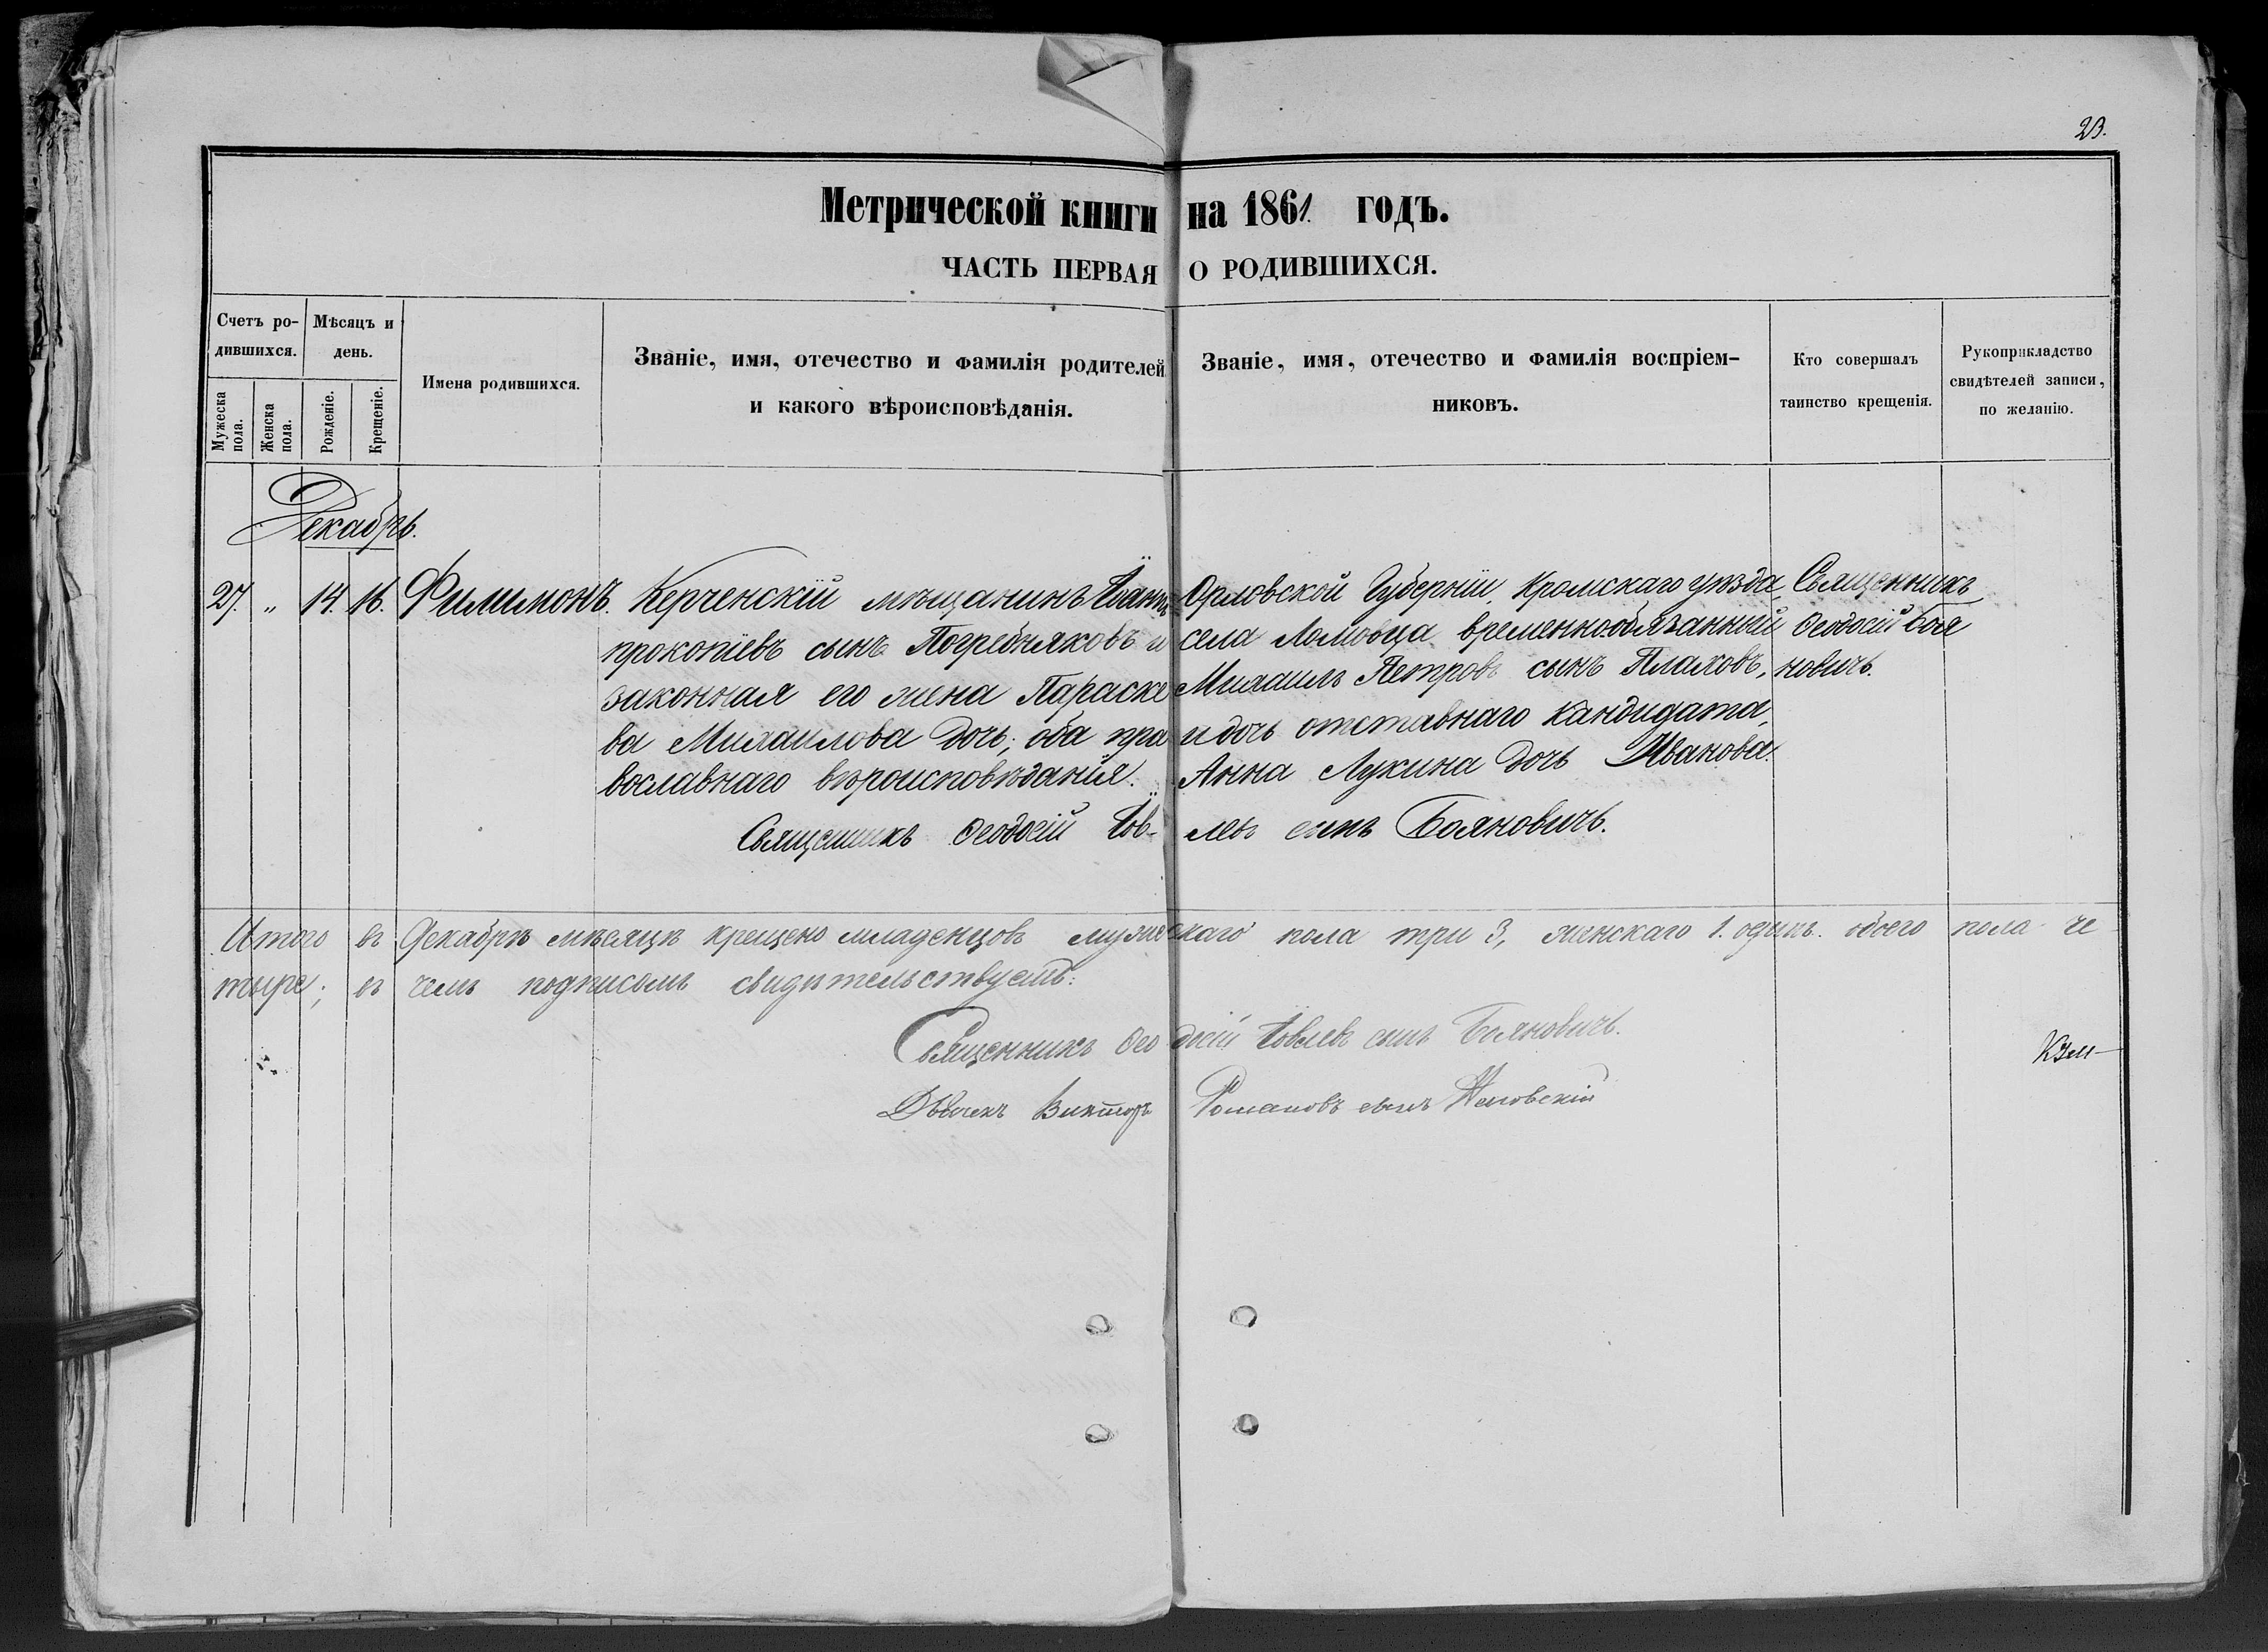 23.
Метрической книги на 1861 годъ.
ЧАСТЬ ПЕРВАЯ О РОДИВШИХСЯ.
Счетъ ро-
дившихся.
Мужеска пола.
Женска пола.
Мѣсяцъ и
день.
Рожденіе.
Крещеніе.
Имена родившихся.
Званіе, имя, отечество и фамилія родителей
и какого вѣроисповѣданія.
Званіе, имя, отечество и фамилія воспріем-
никовъ.
Кто совершалъ
таинство крещенія.
Рукоприкладство
свидѣтелей записи,
по желанію.
Декабрь.
27. " 14. 16. Филимонъ.
Керченскій мѣщанинъ Іоаннъ
прокопіевъ сынъ Погребняковъ и
законная его жена Параске
ва Михаилова дочь; оба пра
вославнаго вѣроисповѣданія.
Орловской Губерніи, Кромскаго уѣзда,
села Ломовца временнообязанный
Михаилъ Петровъ сынъ Плаховъ,
и дочь отставнаго кандидата,
Анна Лукина дочь Иванова.
Священникъ
Ѳеодосій Боя
новичъ.
Священникъ Ѳеодосій Іов-левъ сынъ Бояновичъ.
Итого въ Декабрѣ мѣсяцѣ крещено младенцовъ мужескаго пола три 3, женскаго 1. одинъ. обоего пола че
тыре; въ чемъ подписомъ свидѣтельствуемъ:
Священникъ Ѳеодосій Іовлевъ сынъ Бояновичъ.
Дьячекъ Викторъ Романовъ сынъ